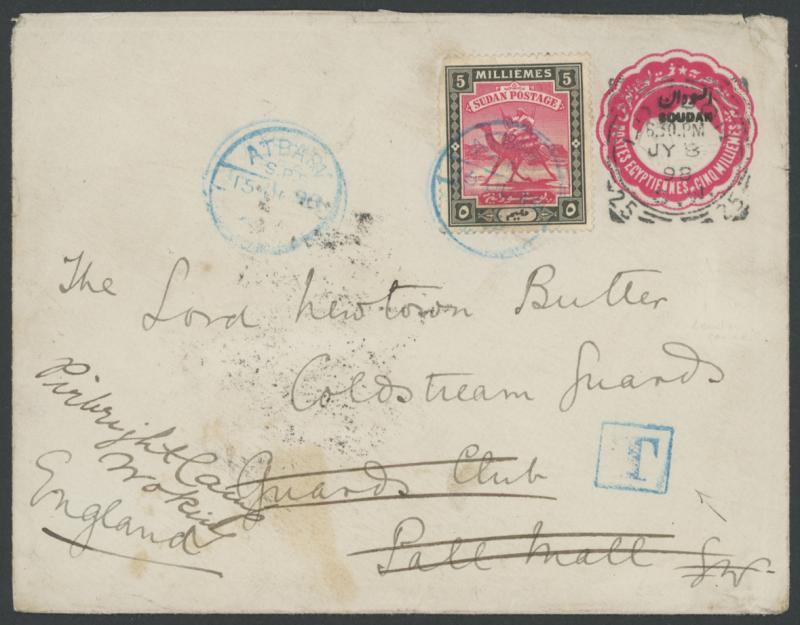 5 MILLIEMES 5
SUDAN POSTAGE
٥ مليم ٥
السودان
SOUDAN
6.30.PM
JY 8
98
25 25
POSTES EGYPTIENNES. CINQ MILLIEMES
ATBARA
The Lord Newtown Butler
Coldstream Guards
Guards Club
Pall Mall S.W.
Pirbright Camp
Woking
England
T